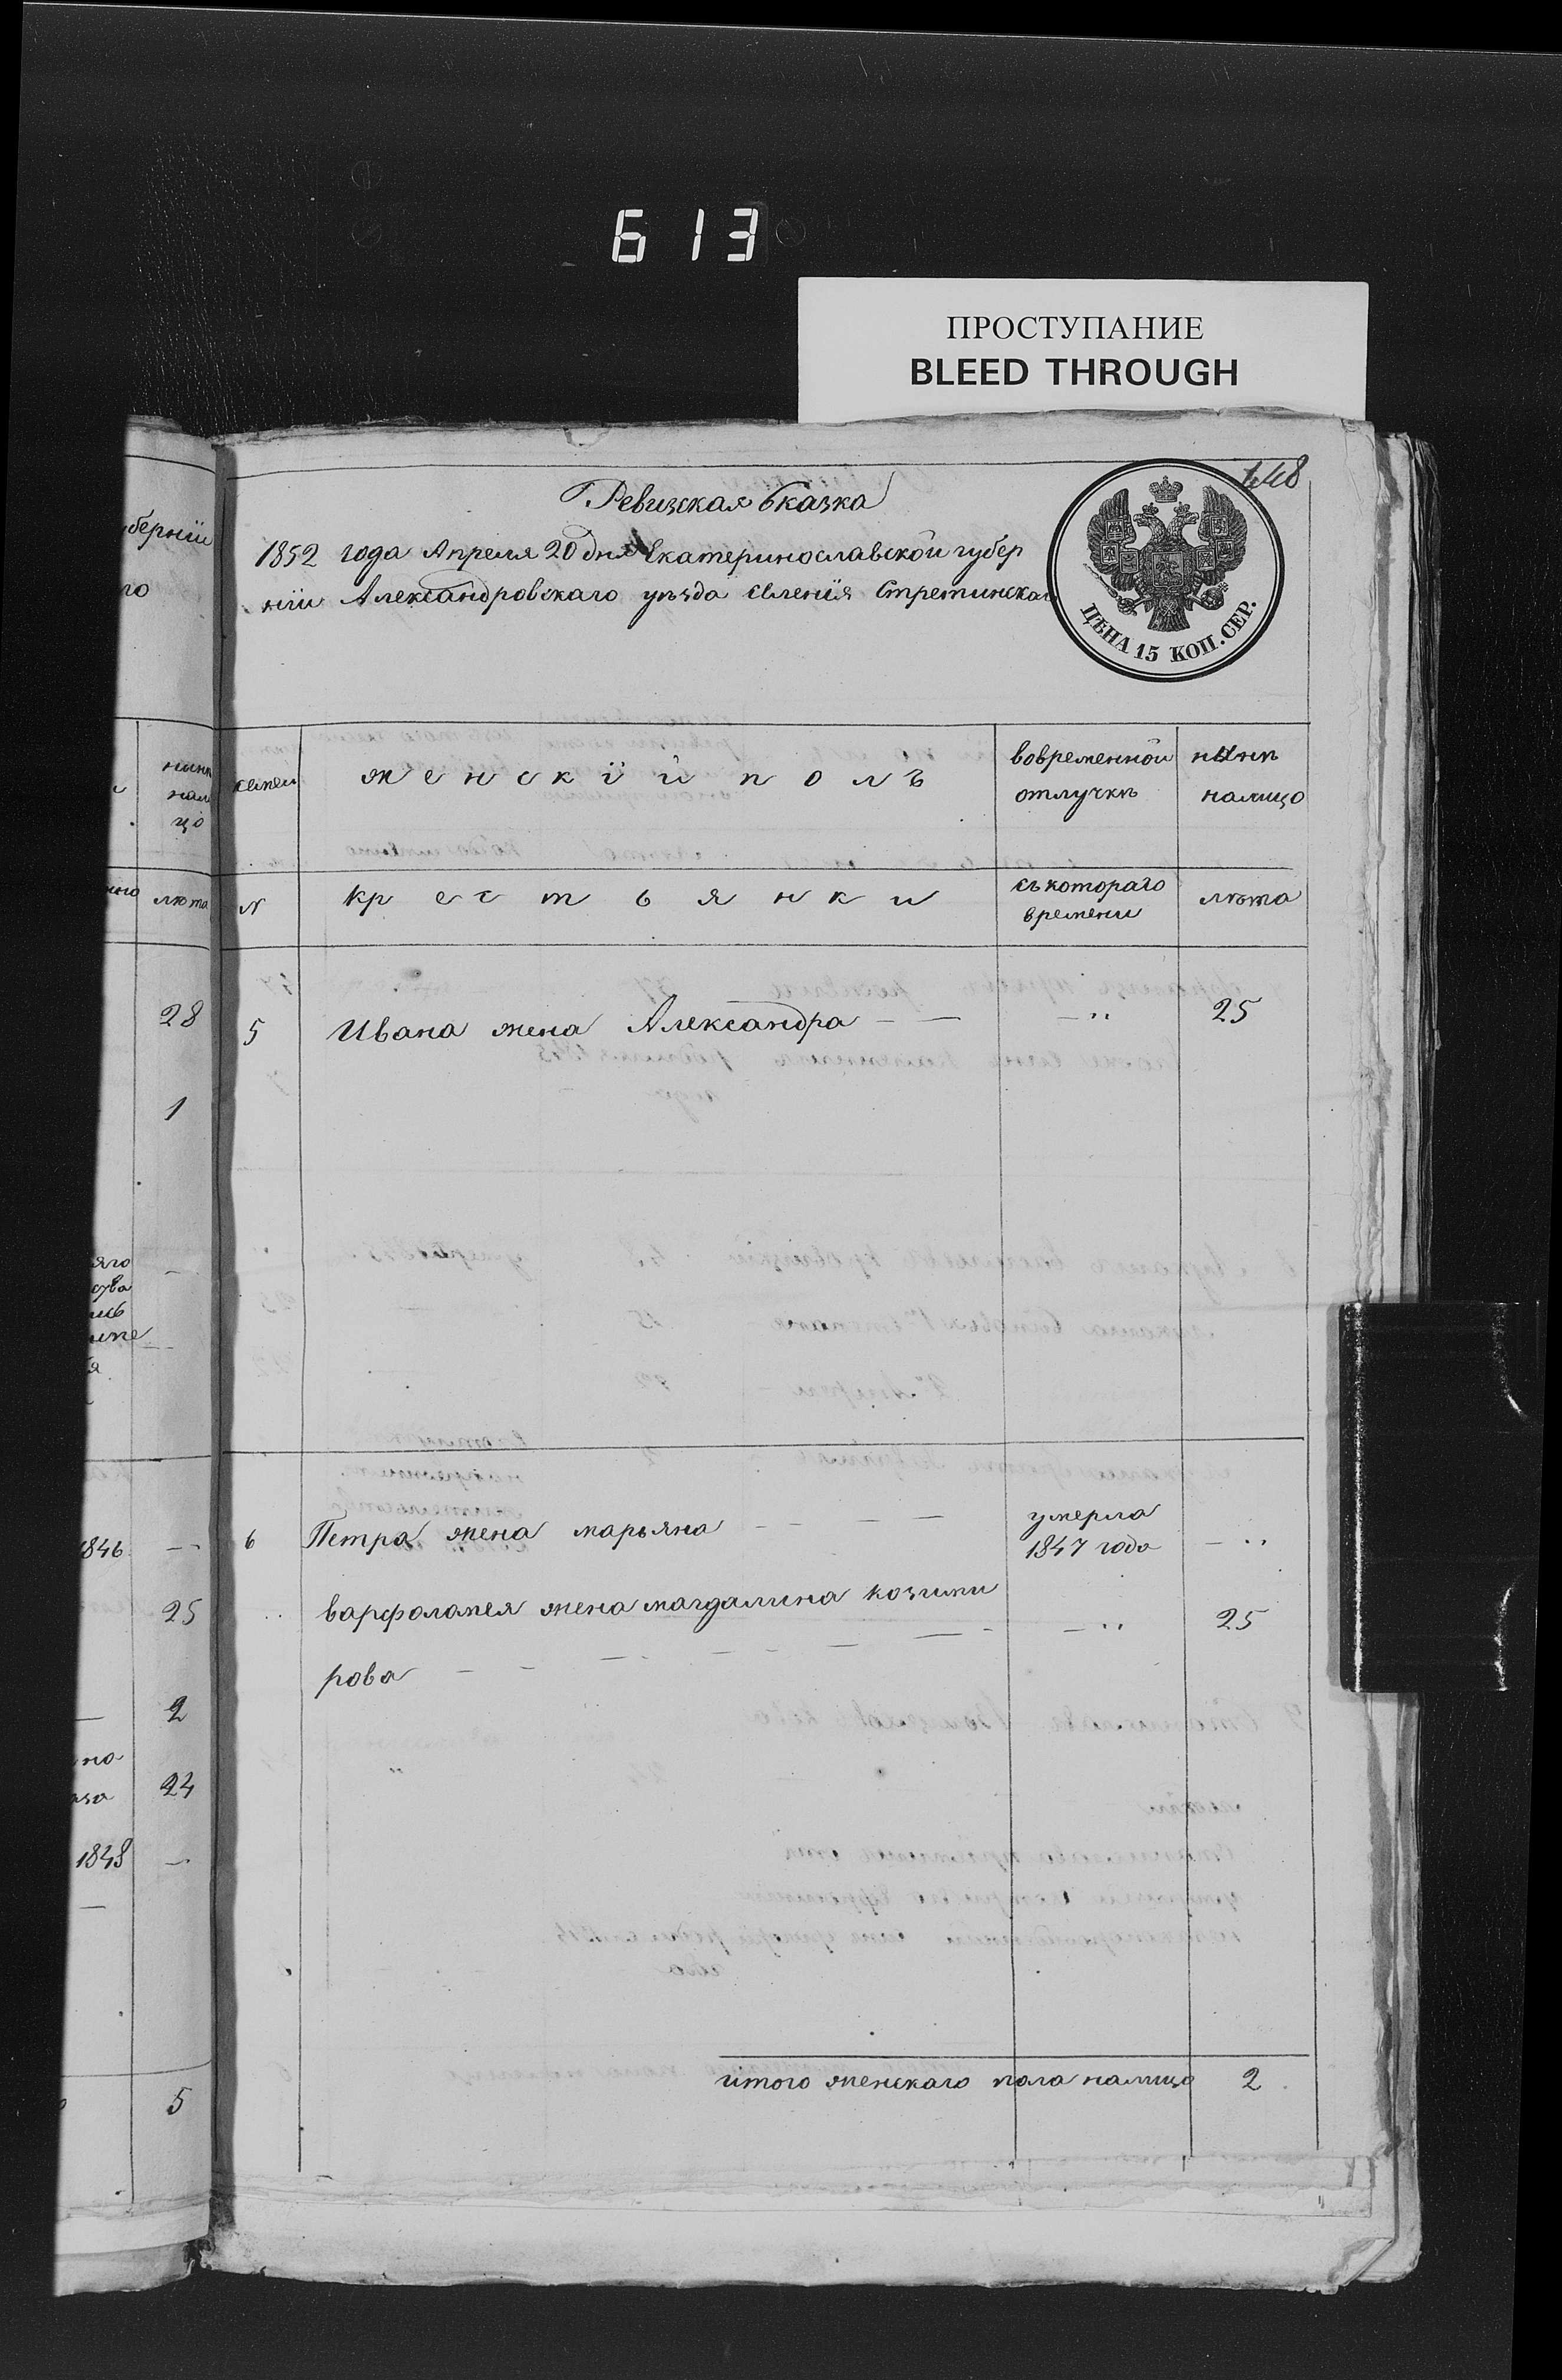 613
ПРОСТУПАНИЕ
BLEED THROUGH
448
Ревизская Сказка
1852 года Апреля 20 дня Екатеринославской губер
нїи Александровскаго уѣзда селенїя Стретинскаго
ЦѢНА 15 КОП. СЕР.
семеи
женскїй полъ
вовременной
отлучкѣ
нынѣ
налицо
N
крестьянки
съ котораго
времени
лѣта
5 Ивана жена Александра — — — „ 25
6 Петра жена марьяна — — — — умерла
1847 года — „
„ варфоломея жена магдалина козими
рова — — — — — — — — „ 25
итого женскаго пола налицо 2
губернїи
го
нынѣ
нали
цо
лѣта
28
1
яго
1846 —
25
2
но
24
1848 —
5